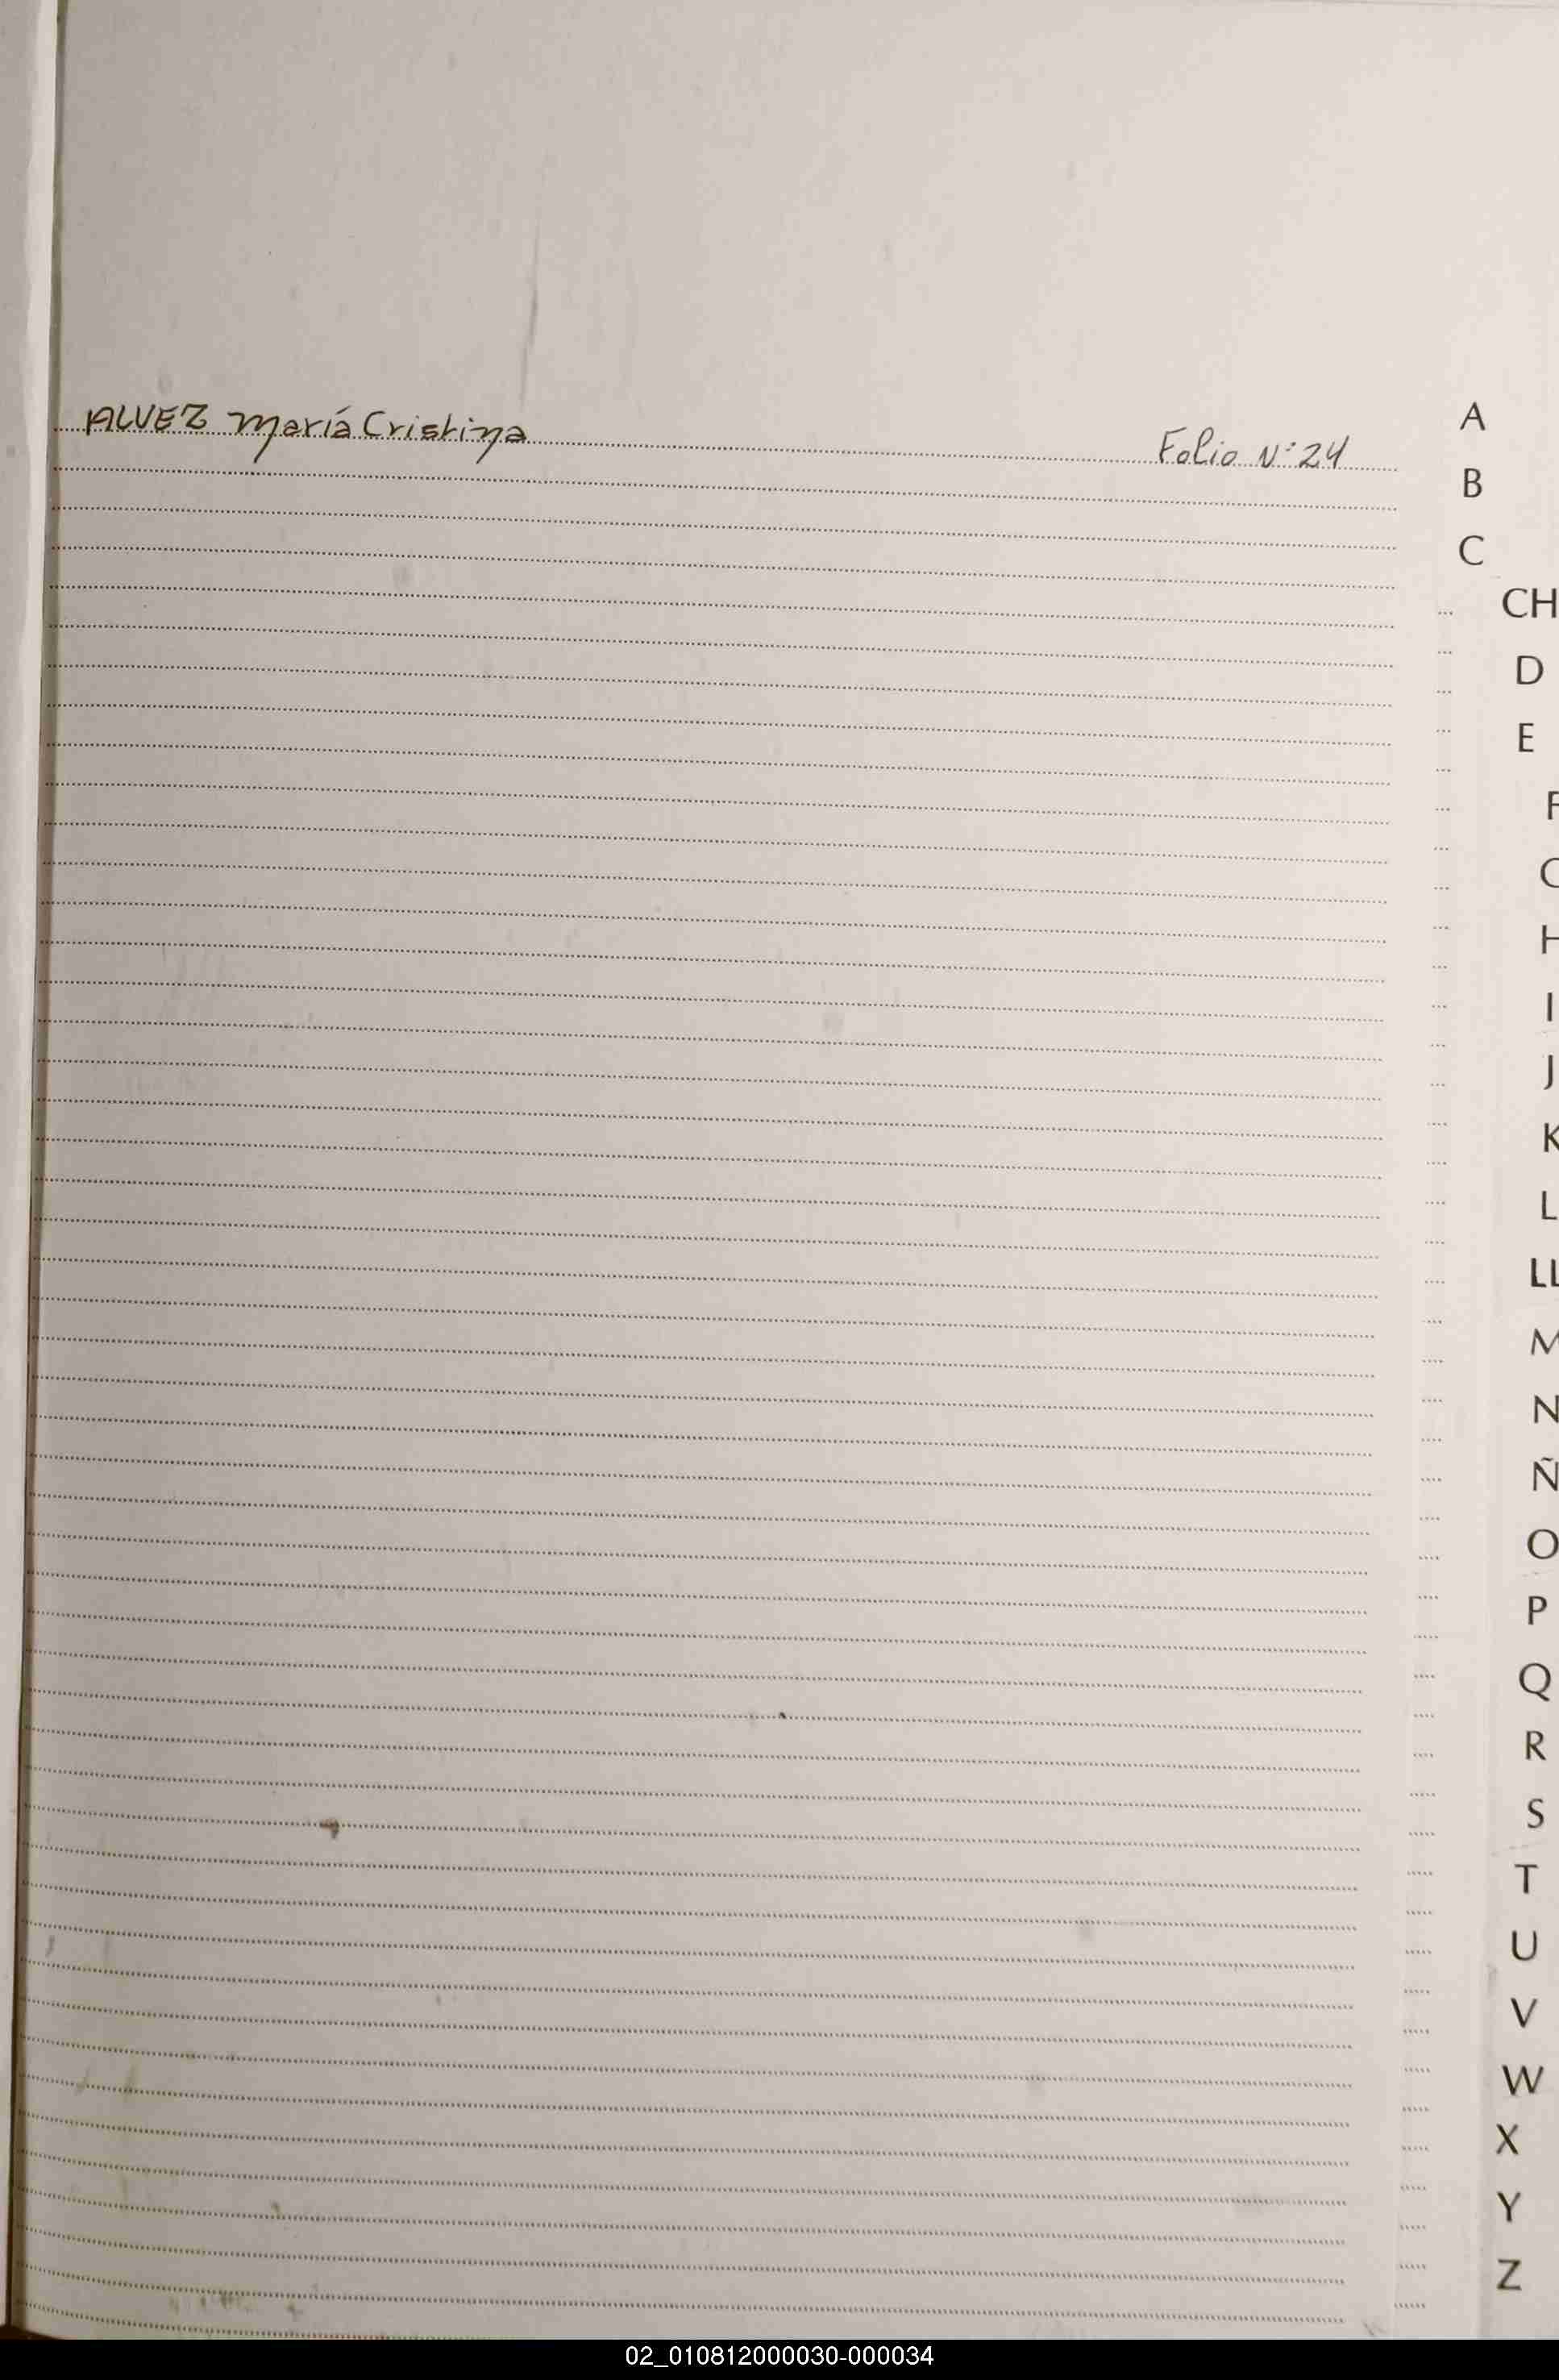 ALVEZ María Cristina Folio N° 24
A
B
C
CH
D
E
F
H
I
J
K
L
LL
M
N
Ñ
O
P
Q
R
S
T
U
V
W
X
Y
Z
02_010812000030-000034